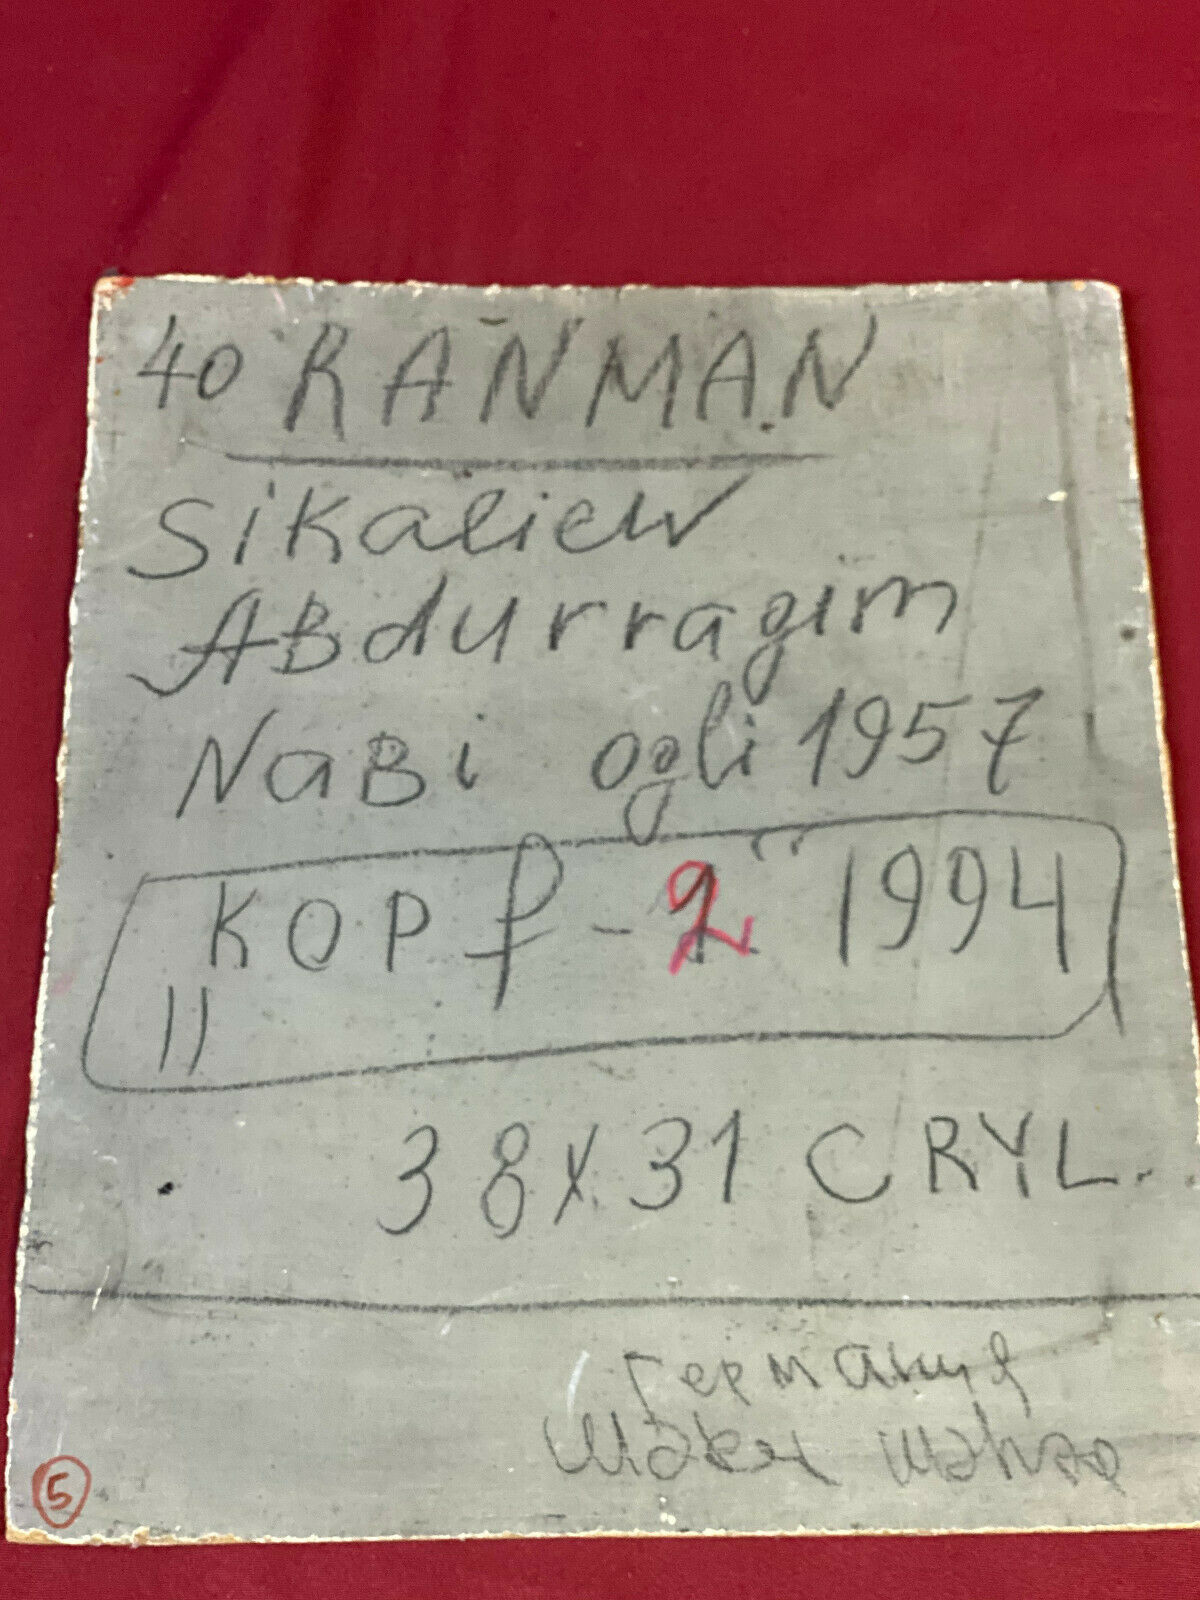 40 RAHMAN
Sikaliew
ABdurragim
NaBi ogli 1957
KOPf - 2" 1994
"
38x31 CRYL.
Германия
5